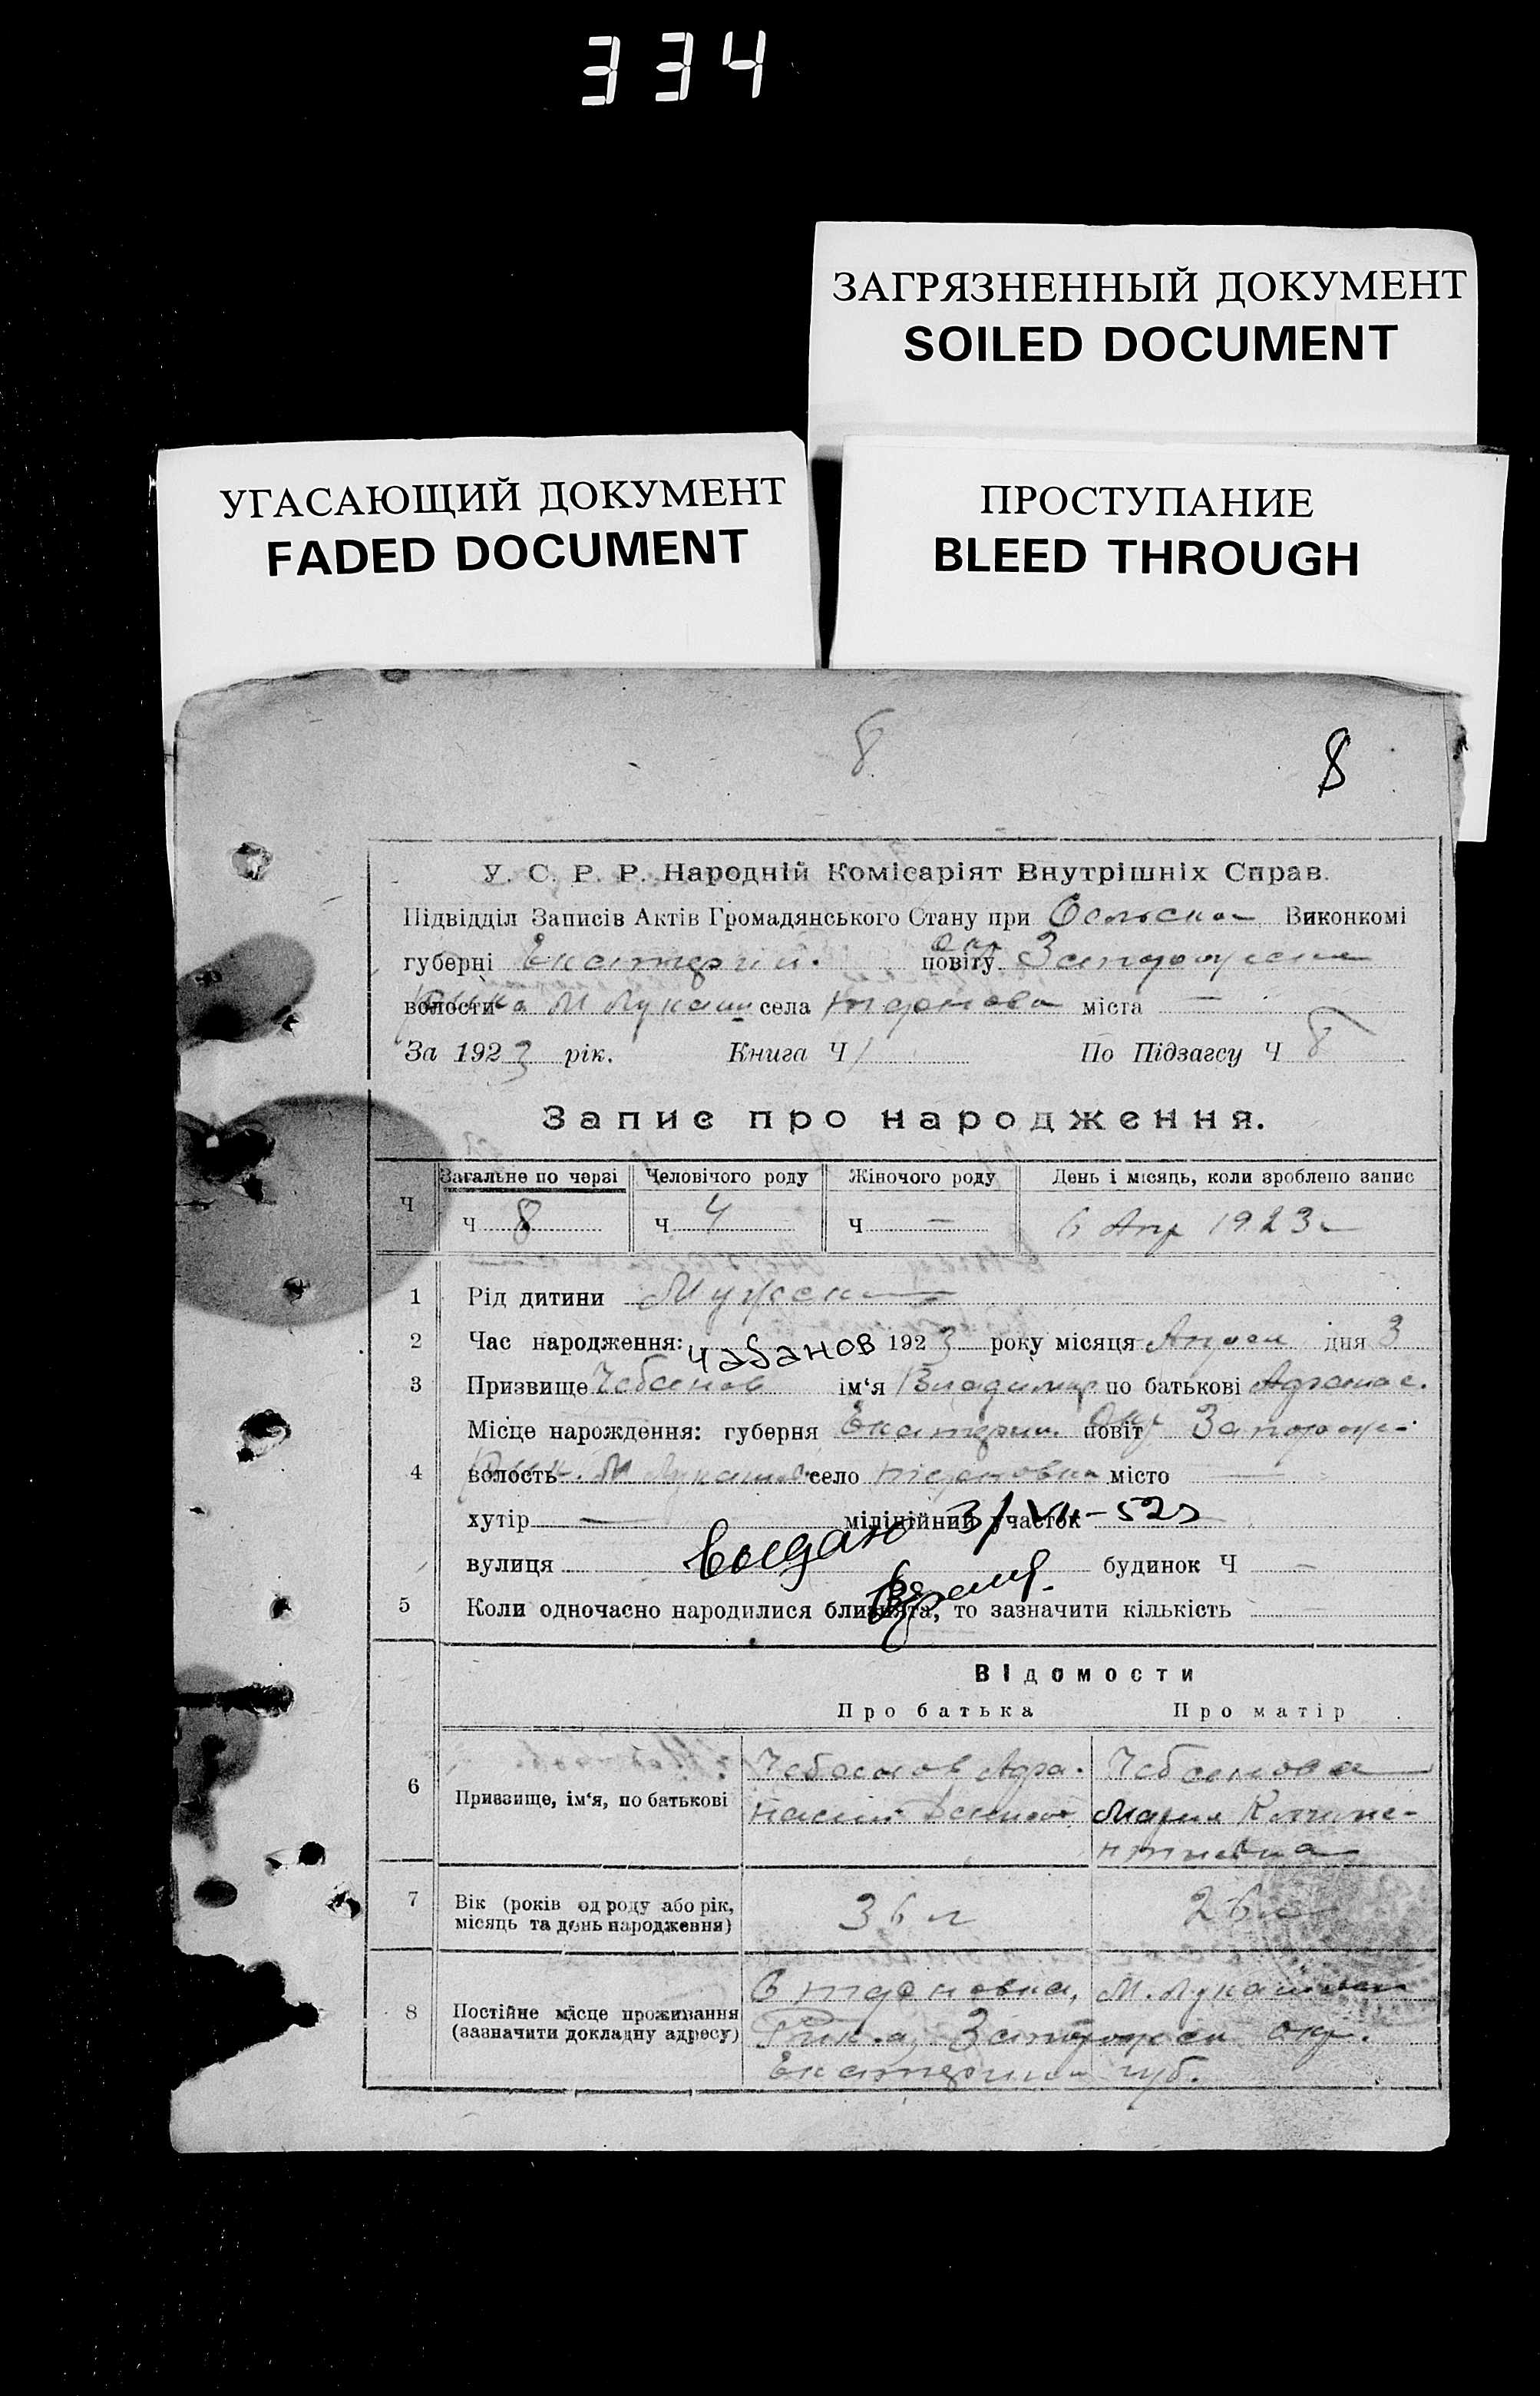 334
ЗАГРЯЗНЕННЫЙ ДОКУМЕНТ
SOILED DOCUMENT
УГАСАЮЩИЙ ДОКУМЕНТ
FADED DOCUMENT
ПРОСТУПАНИЕ
BLEED THROUGH
8
8
У. С. Р. Р. Народній Комісаріят Внутрішніх Справ.
Підвідділ Записів Актів Громадянського Стану при Сельском Виконкомі
губерні Екатерин. повіту Окр Запорожско
волости М Лукаш села міста —
За 1923 рік. Книга Ч 1 По Підзагсу Ч 8
Запис про народження.
Ч Загальне по черзі Человічого роду Жіночого роду День і місяць, коли зроблено запис
Ч 8 Ч 4 Ч — 6 Апр 1923
1 Рід дитини Мужск
2 Час народження: 1923 року місяця Апреля дня 3
Чабанов
3 Призвище Чебанов ім‘я Владимир по батькові
4 Місце нарождення: губерня Екатерин повіт Окр Запорож-
волость М Лукаш село місто —
хутір — міліційний участок
выдано 3/VII-52г
вулиця будинок Ч —
5 Коли одночасно народилися близнята, то зазначити кількість
Відомости
Про батька Про матір
6 Призвище, ім‘я, по батькові
Чебанов Чебанова
Мария
7 Вік (років од роду або рік, місяць та день народження) 36 л 26 л
8 Постійне місце проживання (зазначити докладну адресу)
М. Лукаш
Запорожск окр.
Екатерин губ.